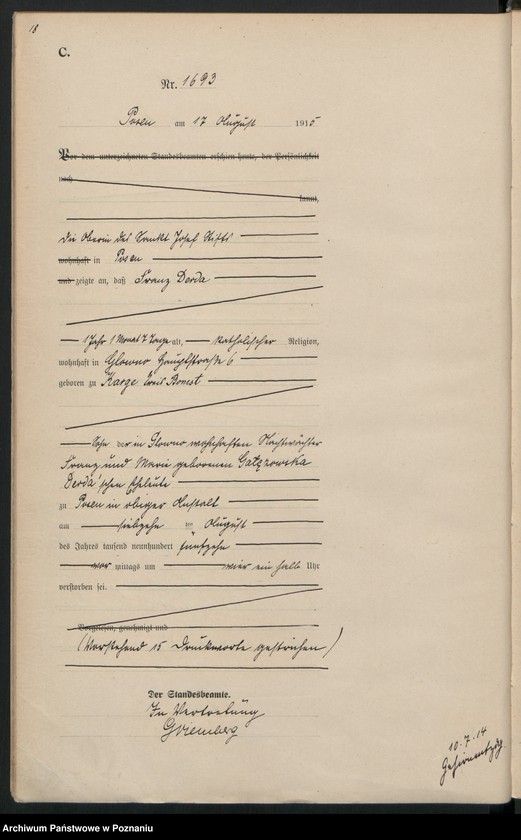 18
C.
Nr. 1693
Posen am 17 August 1915
Vor dem unterzeichneten Standesbeamten erschien heute, der Persönlichkeit
nach
kannt,
die Oberin des Sankt Josef Stifts
wohnhaft in Posen
und zeigte an, daß Franz Derda
1 Jahr 1 Monat 7 Tage alt, katholischer Religion,
wohnhaft in Glowno Hauptstraße 6
geboren zu Karge Kreis Bomst
Sohn der in Glowno wohnhaften Nachtwächter
Franz und Marie geborenen
Derda'schen Eheleute
zu Posen in obiger Anstalt
am siebzehn ten August
des Jahres tausend neunhundert fünfzehn
vor mittags um vier ein halb Uhr
verstorben sei.
Vorgelesen, genehmigt und
(Vorstehend 15 Druckworte gestrichen)
Der Standesbeamte.
In Vertretung
10.7.14
Archiwum Państwowe w Poznaniu